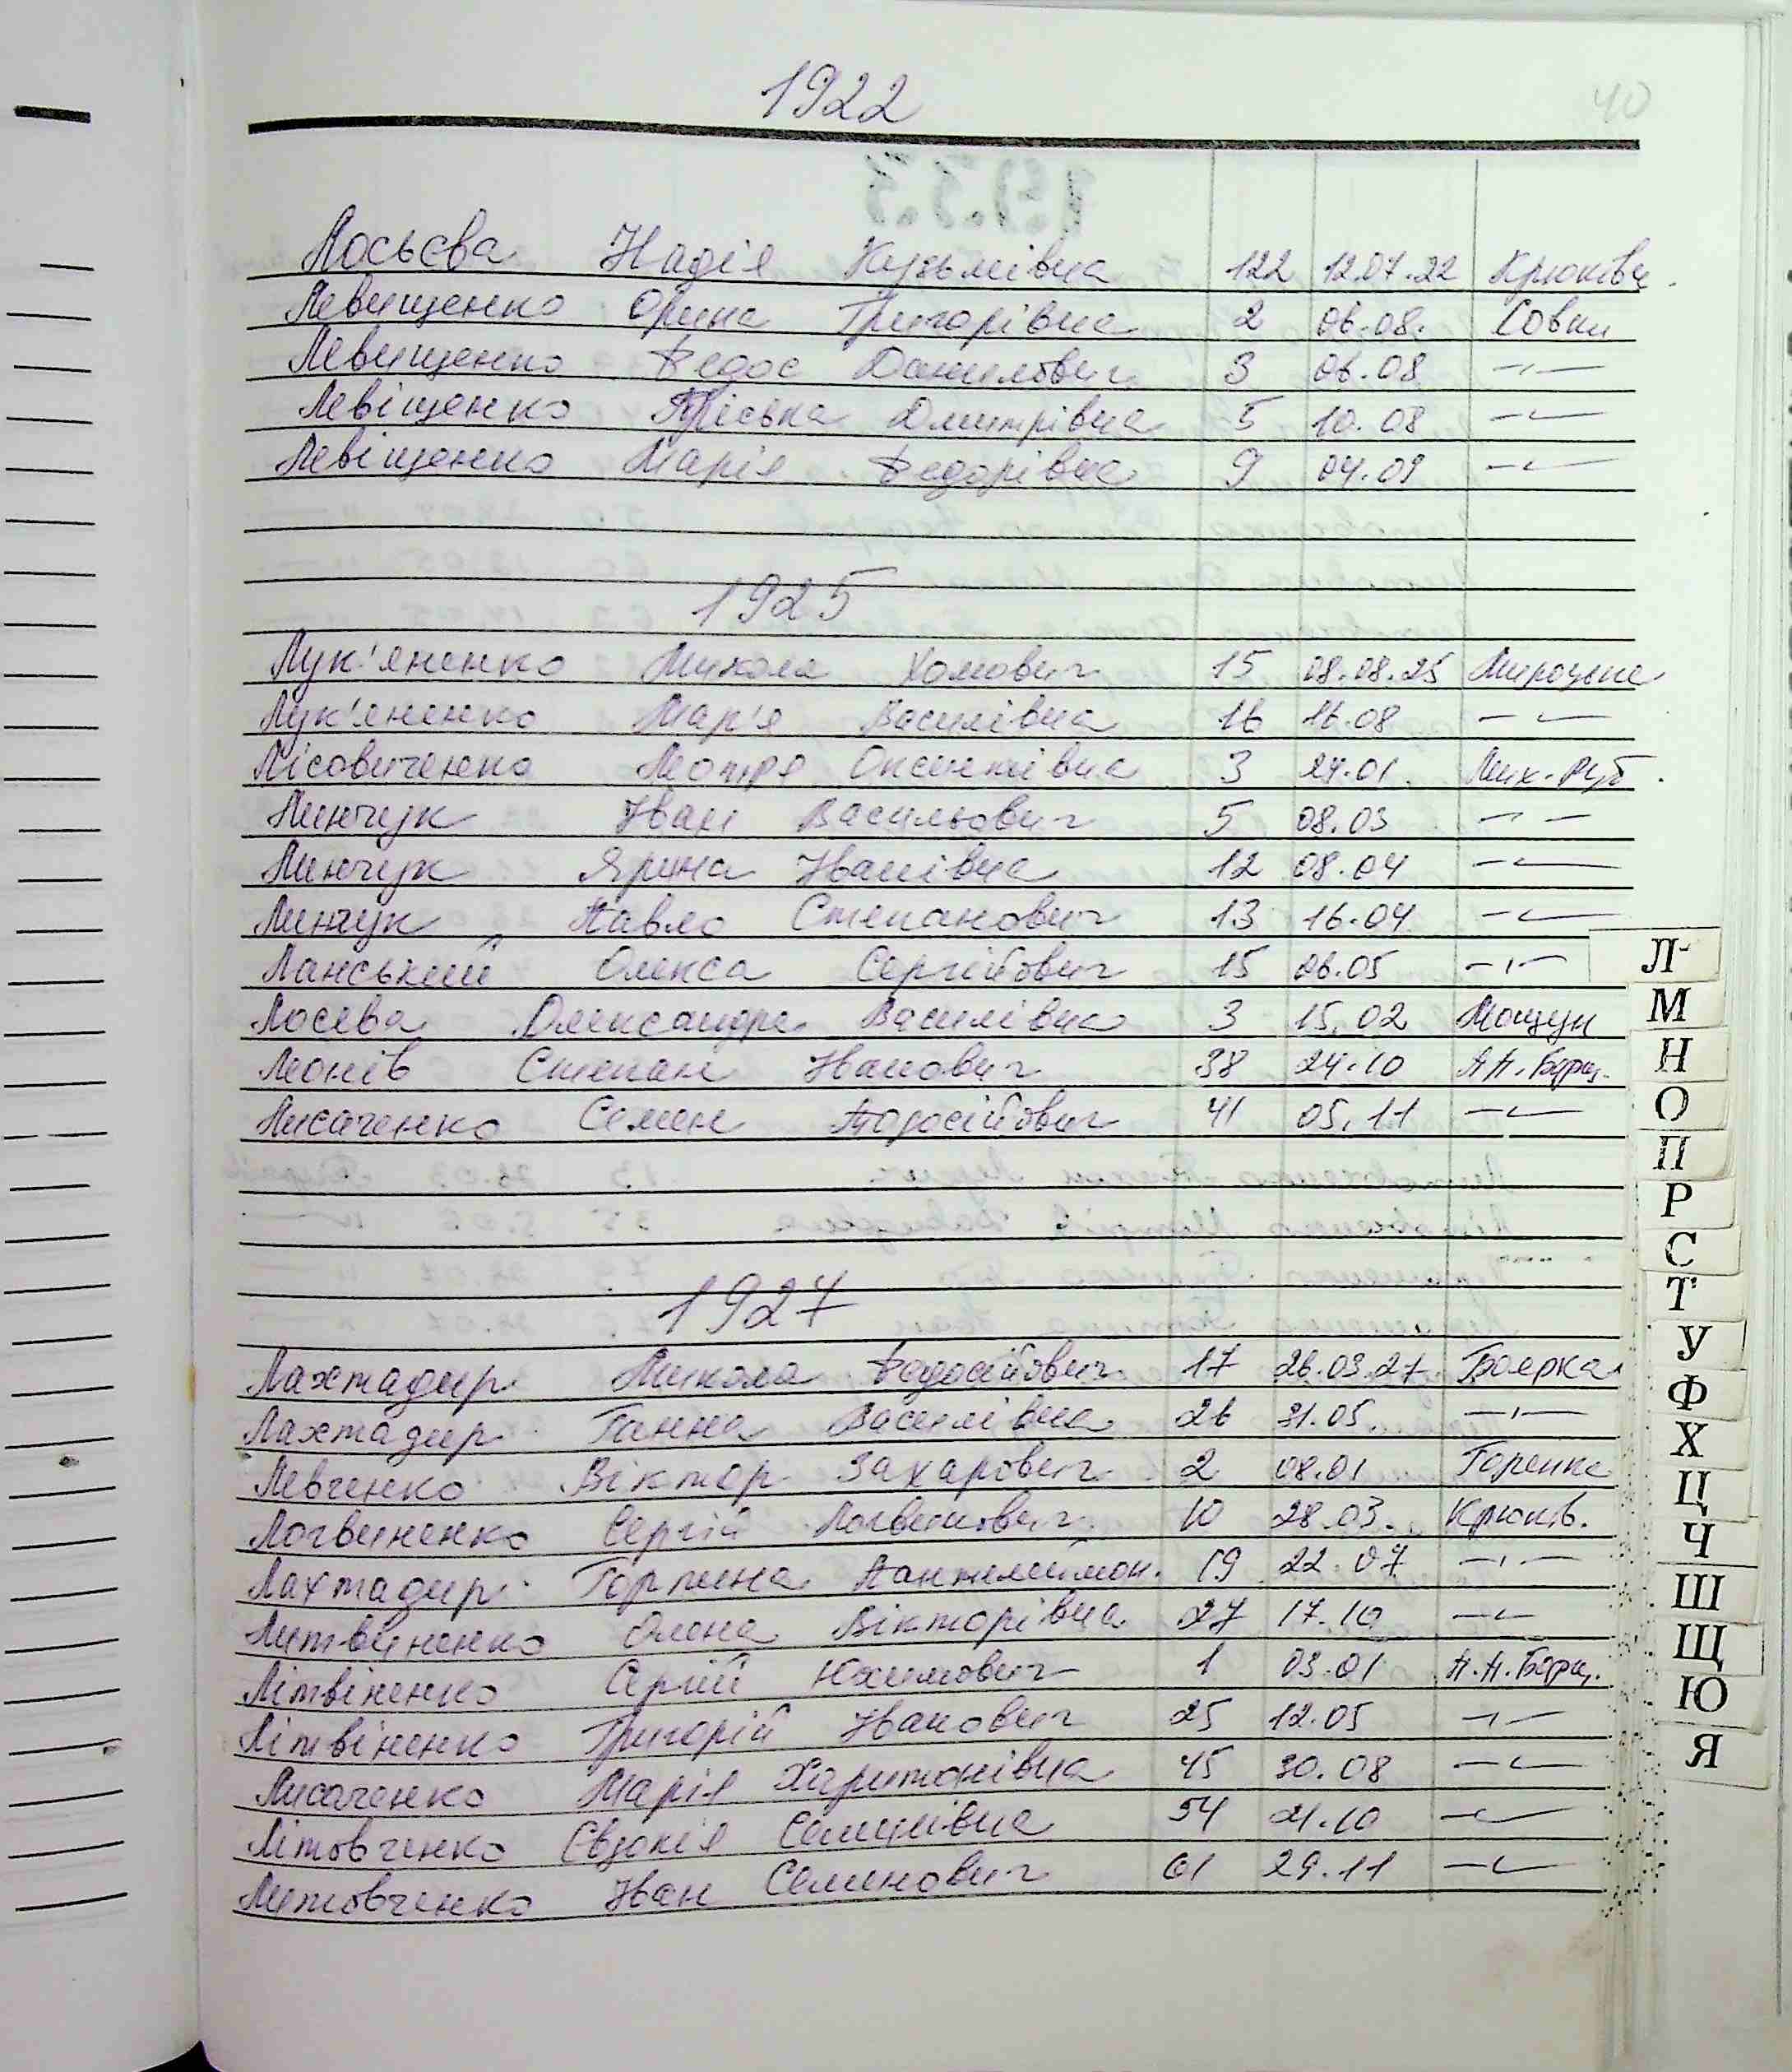 40
1922
Лосьєва Надія Кузьмівна 122 12.07.22 Крюківщ
Левищенко Орина Григорівна 2 06.08. Совки
Левищенко Федос Данилович 3 06.08 —"—
Левіщенко Пріська Дмитрівна 5 10.08 —"—
Левіщенко Марія Федорівна 9 04.09 —"—
1925
Лук'яненко Микола Хомович 15 08.08.25 Мироцьке
Лук'яненко Мар'я Василівна 16 16.08 —"—
Лісовиченко Мотря Оксентівна 3 27.01. Мих-Руб.
Линчук Іван Васильович 5 08.03 —"—
Линчук Ярина Іванівна 12 08.04 —"—
Линчук Павло Степанович 13 16.04 —"—
Ланський Олекса Сергійович 15 06.05 —"—
Лосєва Олександра Василівна 3 15.02 Мощун
Леонів Степан Іванович 38 24.10 П.П.Борщ.
Лисаченко Семен Тодосійович 41 05.11 —"—
1927
Лахтадир Микола Федосійович 17 26.03.27 Боярка
Лахтадир Ганна Василівна 26 31.05. —"—
Левченко Віктор Захарович 2 08.01 Горенка
Логвиненко Сергій Логвинович 10 28.03. Крюків.
Лахтадир Горпина Пантелеймон. 19 22.07 —"—
Литвиненко Олена Вікторівна 27 17.10 —"—
Літвіненко Сергій Юхимович 1 03.01 П.П.Борщ.
Літвіненко Григорій Іванович 25 12.05 —"—
Лисаченко Марія Харитонівна 45 30.08 —"—
Літовченко Євдокія Семенівна 54 21.10 —"—
Литовченко Іван Семенович 61 29.11 —"—
Л
М
Н
О
П
Р
С
Т
У
Ф
Х
Ц
Ч
Ш
Щ
Ю
Я